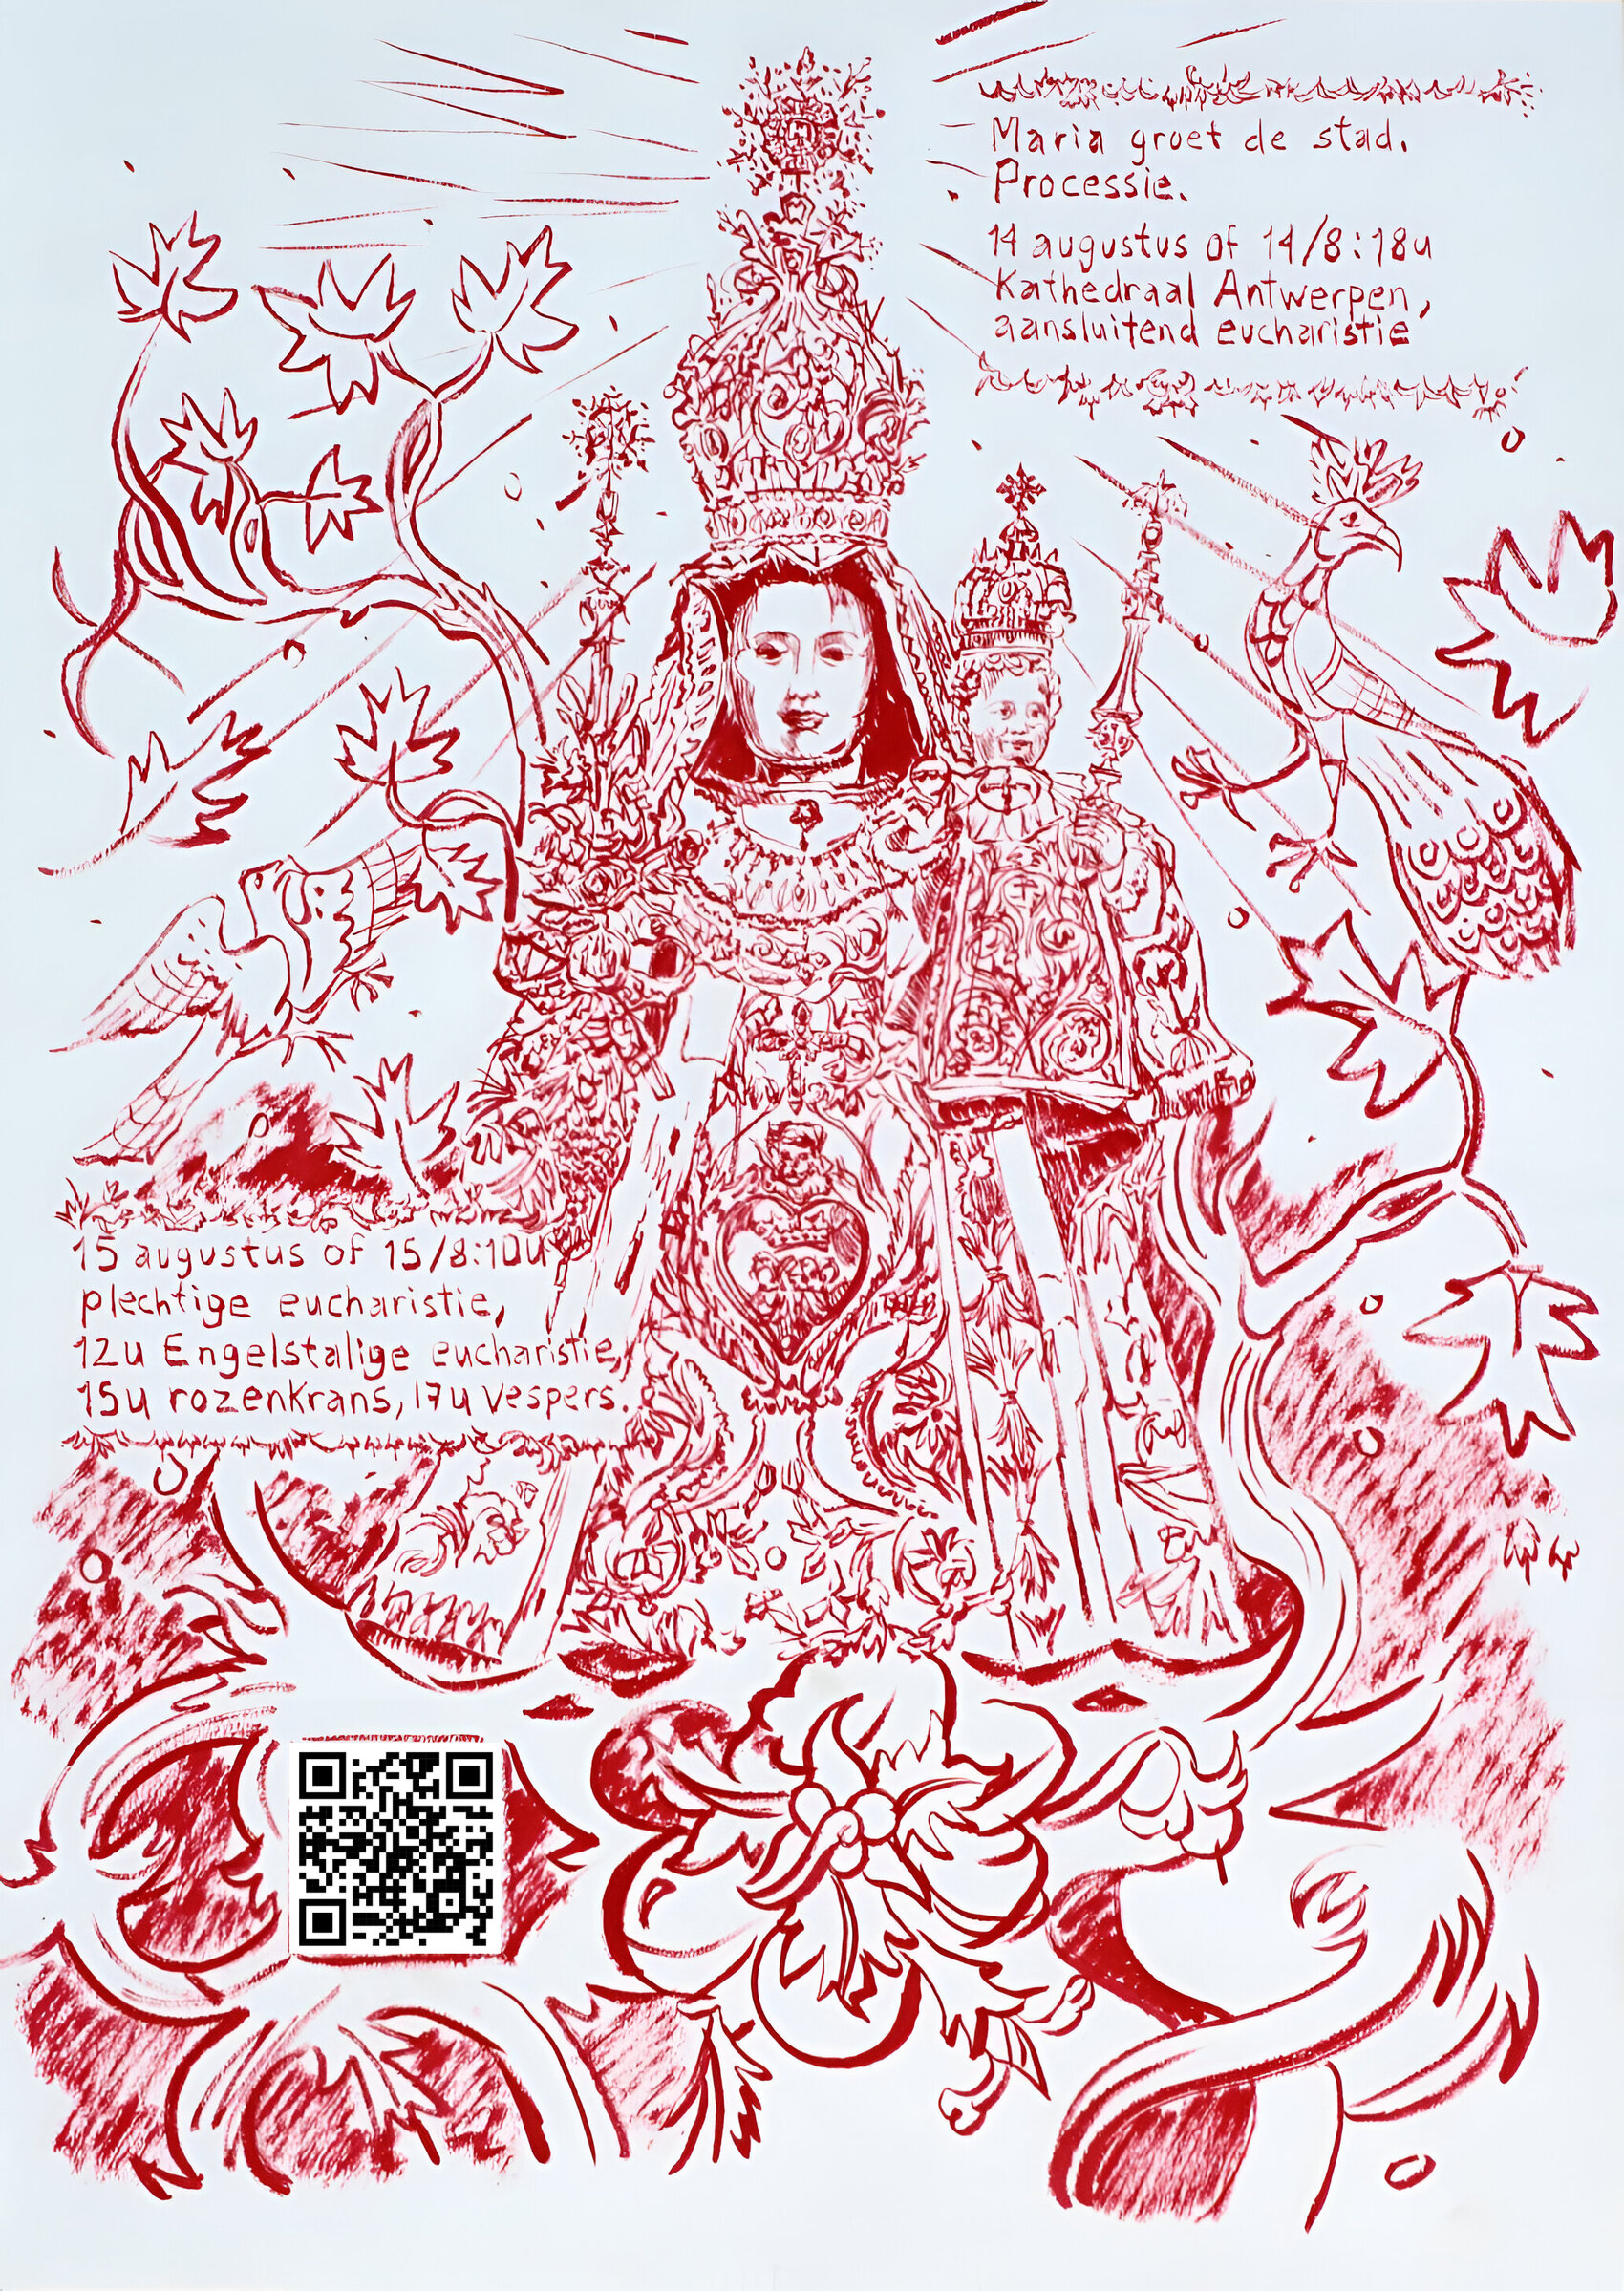 Maria groet de stad.
Processie.
14 augustus of 14/8:18u
Kathedraal Antwerpen,
aansluitend eucharistie
15 augustus of 15/8:10u
plechtige eucharistie,
12u Engelstalige eucharistie,
15u rozenkrans, 17u vespers.